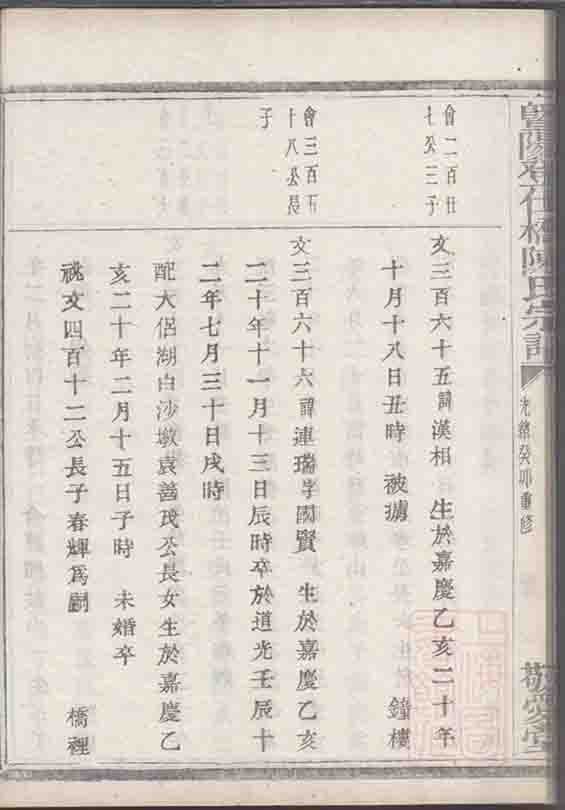 暨陽登仕橋陳氏宗譜
光緒癸卯重修
敬愛堂
會二百廿
七公三子
文三百六十五諱漢相 生於嘉慶乙亥二十年
十月十八日丑時 被擄 鐘樓
會三百五
十八公長
子
文三百六十六諱連瑞字國賢 生於嘉慶乙亥
二十年十一月十三日辰時卒於道光壬辰十
二年七月三十日戌時
配大侶湖白沙墩袁善茂公長女生於嘉慶乙
亥二十年二月十五日子時 未婚卒
祧文四百十二公長子春輝爲嗣 橋裡